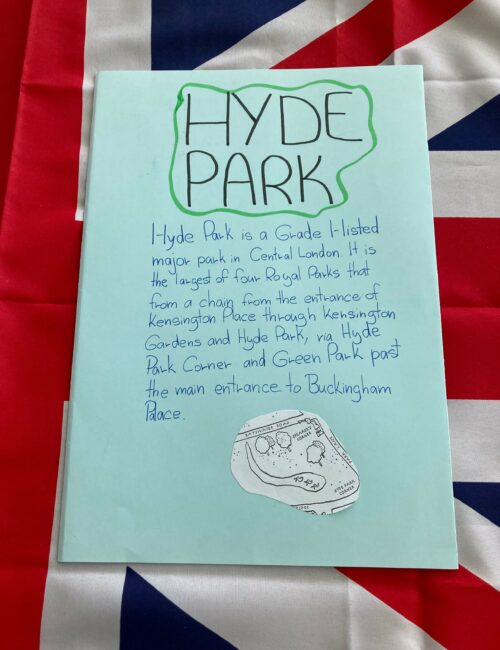 HYDE
PARK
Hyde Park is a Grade I-listed
major park in Central London. It is
the largest of four Royal Parks that
from a chain from the entrance of
Kensington Place through Kensington
Gardens and Hyde Park, via Hyde
Park Corner and Green Park past
the main entrance to Buckingham
Palace.
SPEAKERS
CORNER
HYDE PARK
CORNER